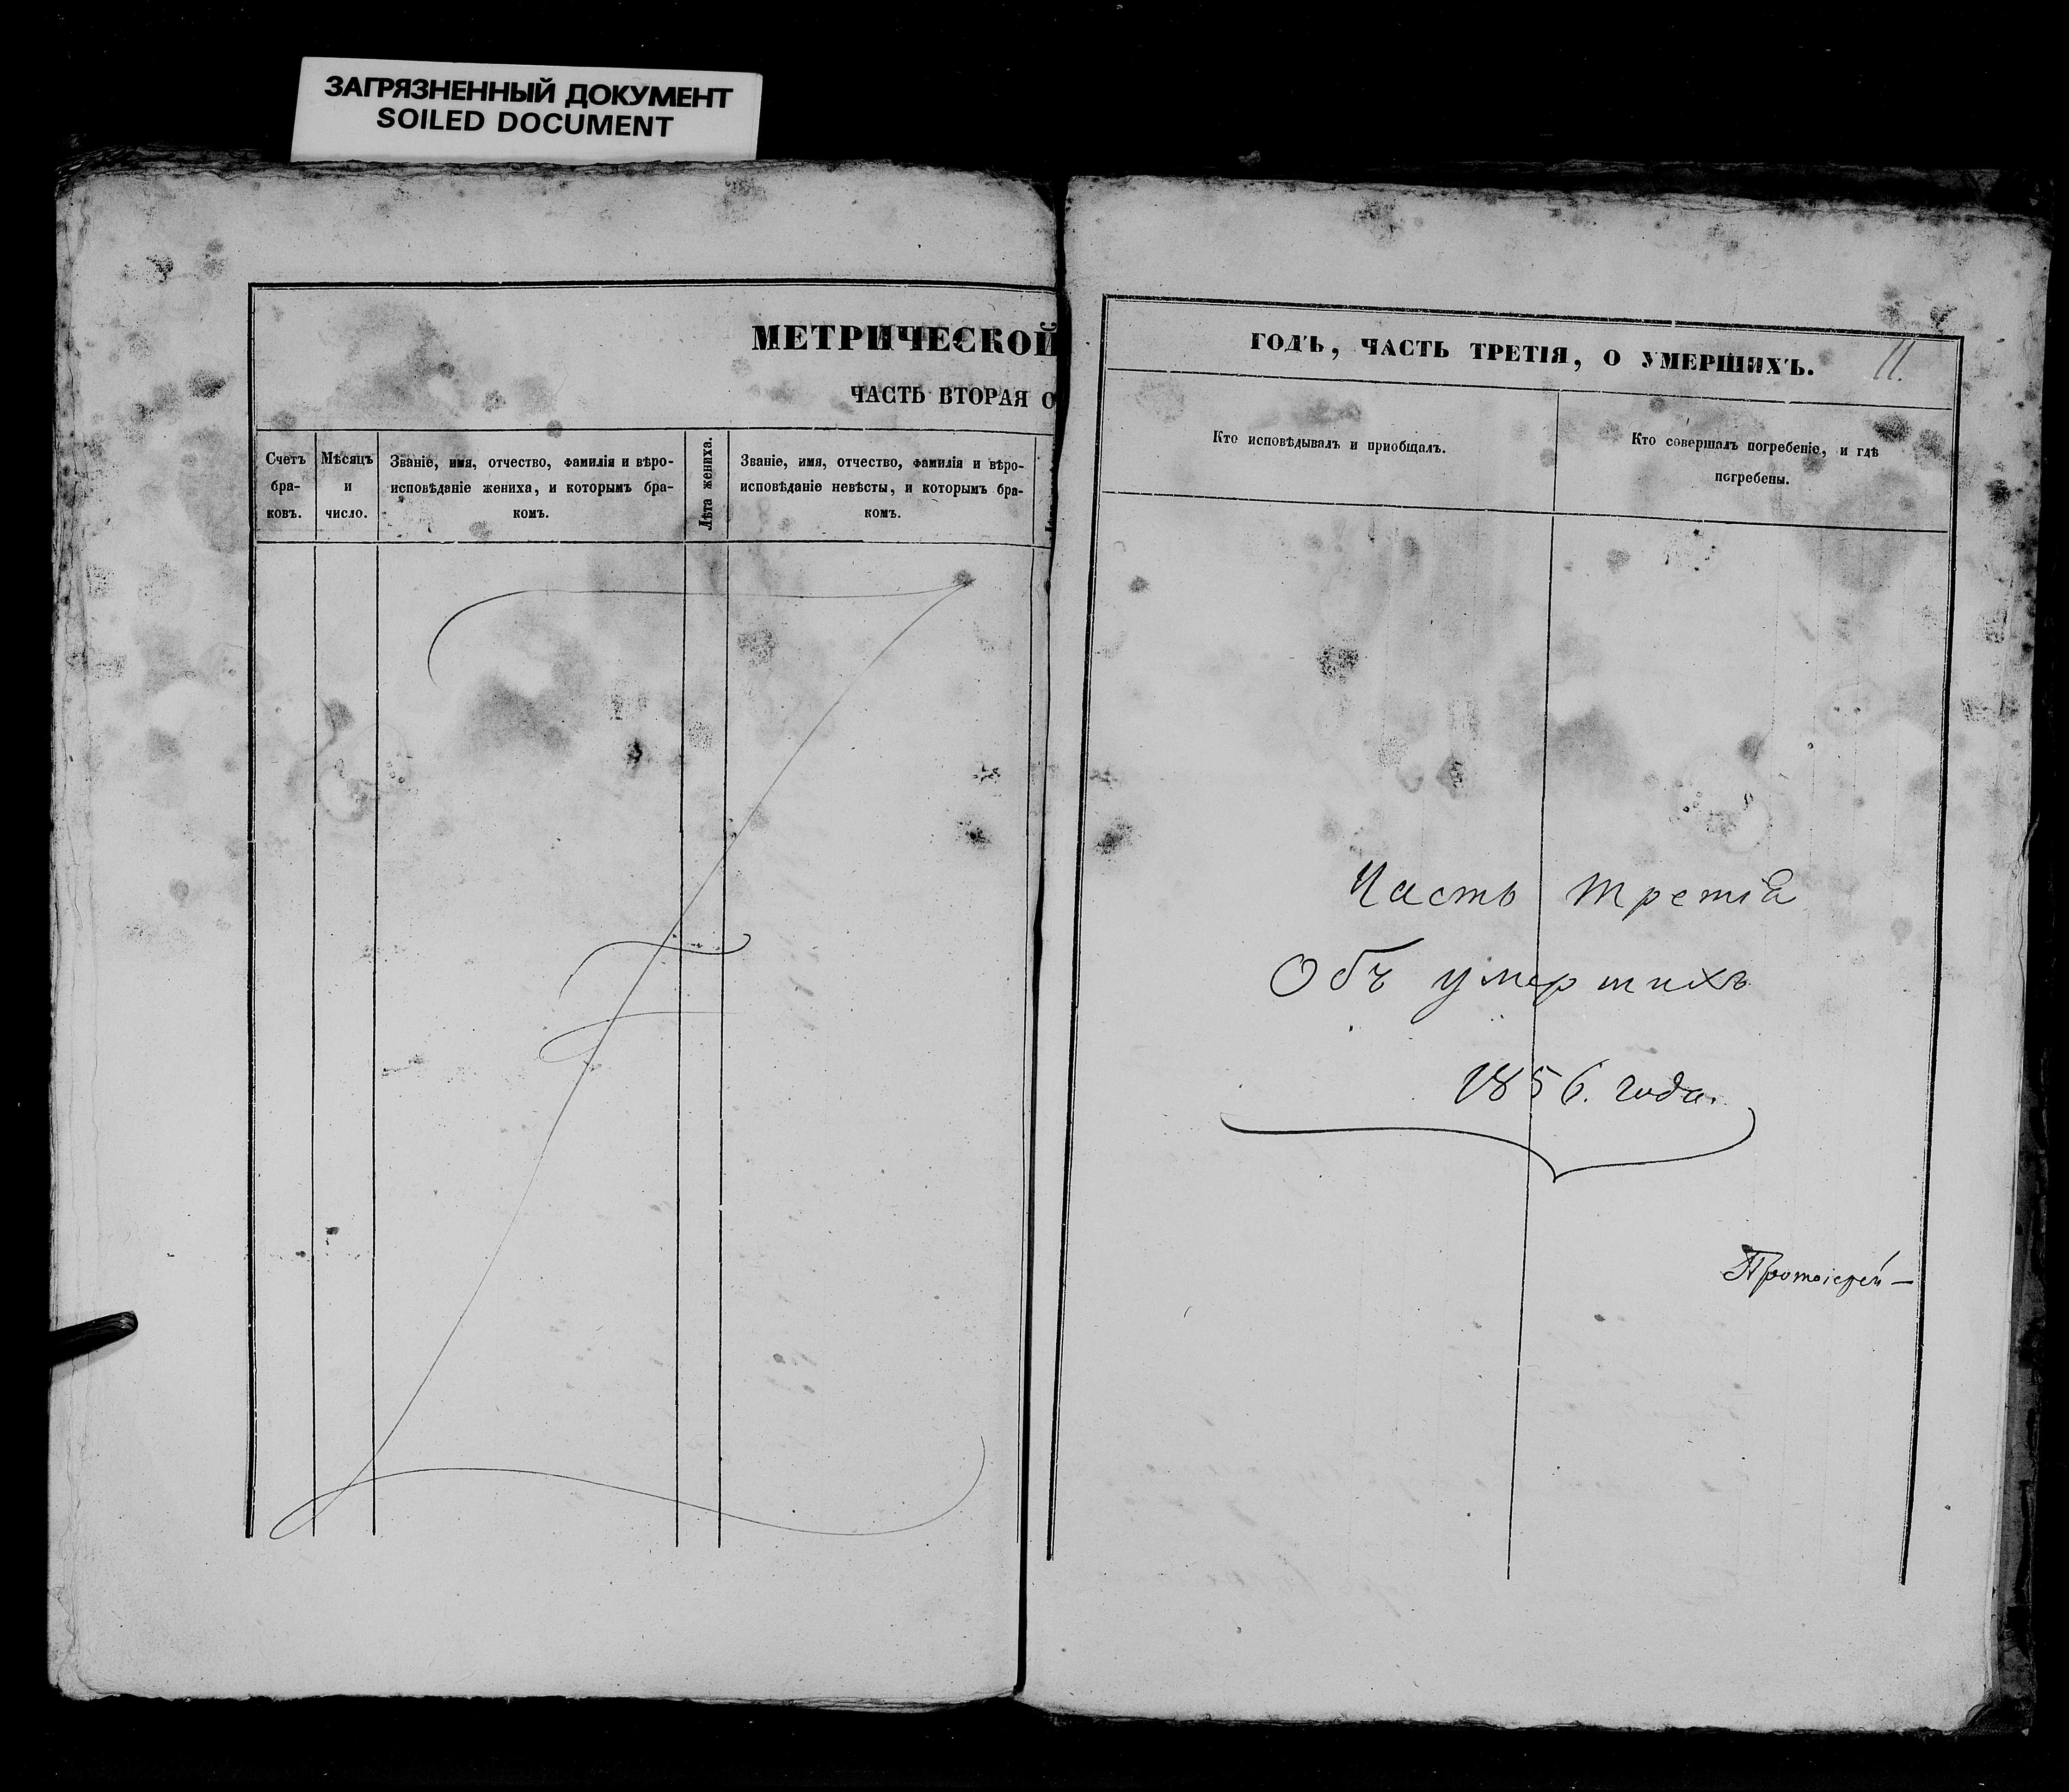 ЗАГРЯЗНЕННЫЙ ДОКУМЕНТ
SOILED DOCUMENT
МЕТРИЧЕСКОЙ
ЧАСТЬ ВТОРАЯ О
Счетъ
бра-
ковъ.
Мѣсяцъ
и
число.
Званіе, имя, отчество, фамилія и вѣро-
исповѣданіе жениха, и которымъ бра-
комъ.
Лѣта жениха.
Званіе, имя, отчество, фамилія и вѣро-
исповѣданіе невѣсты, и которымъ бра-
комъ.
ГОДЪ, ЧАСТЬ ТРЕТІЯ, О УМЕРШИХЪ.
11.
Кто исповѣдывалъ и пріобщалъ.
Кто совершалъ погребеніе, и гдѣ
погребены.
Часть третія
Объ умершихъ
1856. года.
Протоіерей —